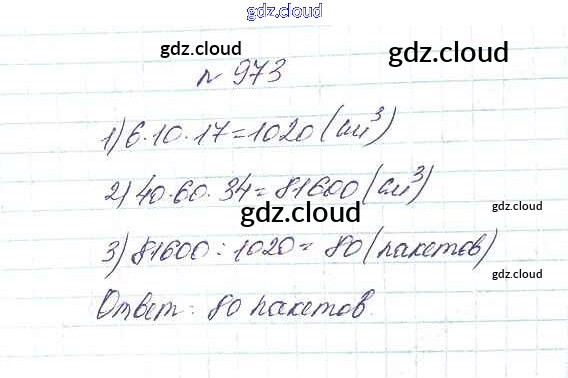 gdz.cloud
gdz.cloud
gdz.cloud
№ 973
gdz.cloud
1) 6·10·17=1020 (см³)
2) 40·60·34=81600 (см³)
gdz.cloud
gdz.cloud
3) 81600:1020= 80 (пакетов)
gdz.cloud
Ответ: 80 пакетов.
gdz.cloud